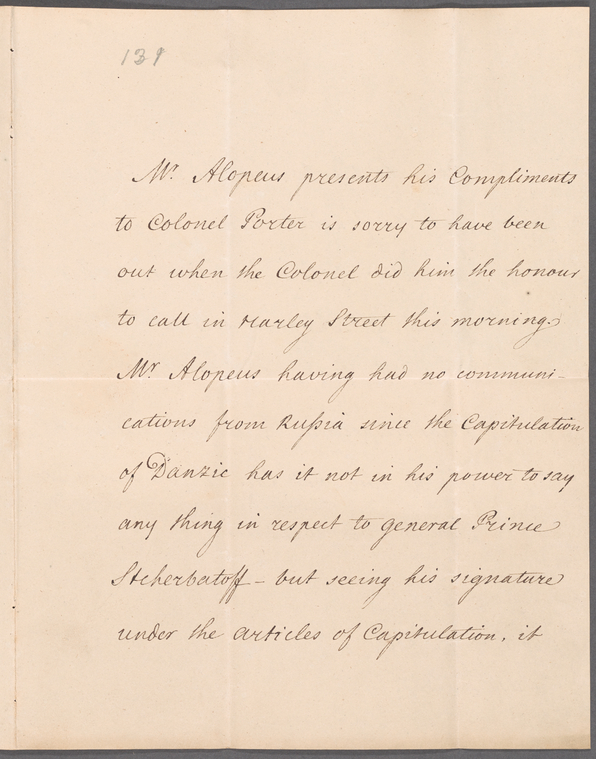 139
Mr. Alopeus presents his Compliments
to Colonel Porter is sorry to have been
out when the Colonel did him the honour
to call in Harley Street this morning.
Mr Alopeus having had no communi-
cations from Rußia since the Capitulation
of Danzic has it not in his power to say
any thing in respect to general Prince
Stcherbatoff - but seeing his signature
under the articles of Capitulation, it